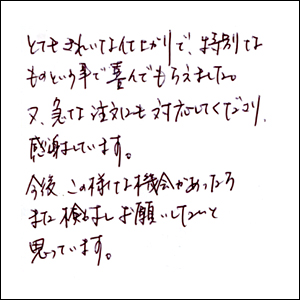 とてもきれいな仕上がりで、特別な
ものという事で喜んでもらえました。
又、急な注文にも対応してくださり、
感謝しています。
今後、この様な機会があったら
また検討しお願いしたいと
思っています。